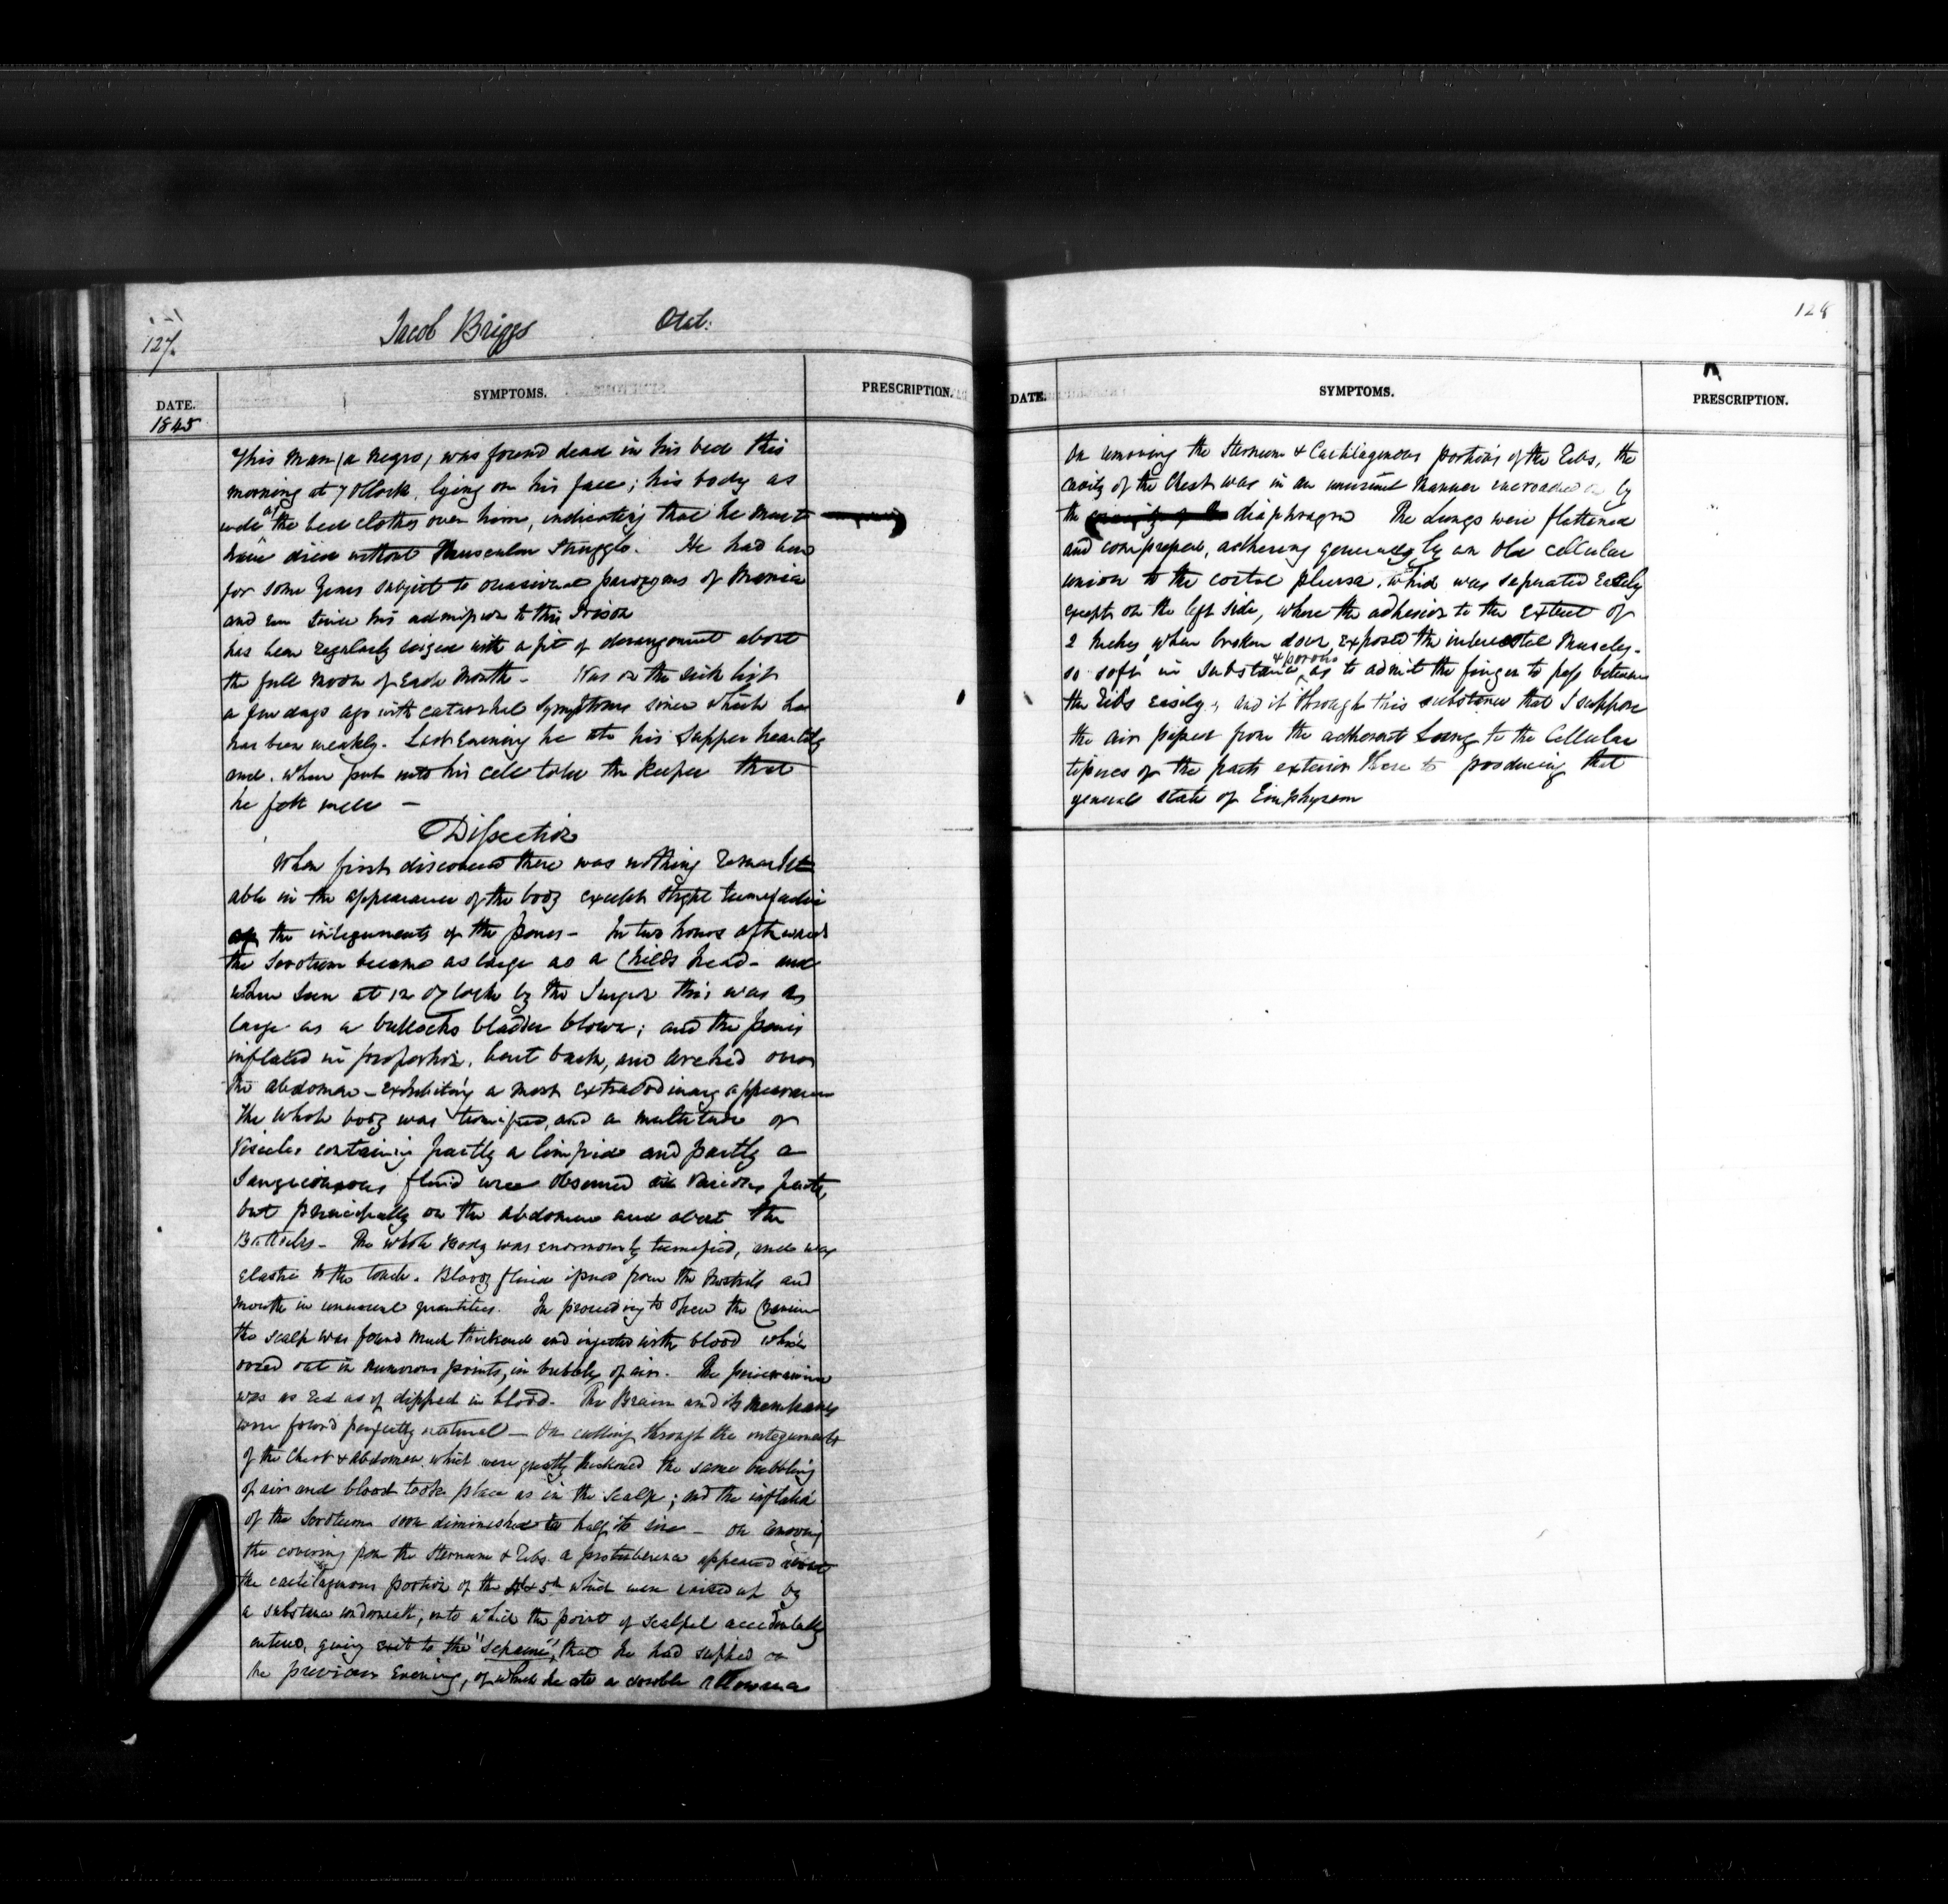 127.
Jacob Briggs
DATE.
SYMPTOMS.
PRESCRIPTION.
1845
This man (a negro) was found dead in his bed this
morning at 7 OClock, lying on his face; his body as
the bed clothes over him, indicating that he must
have died without Muscular Struggle. He had been
for some years subject to occasional paroxysms of Mania
and ever since his admission to this Prison
has been regularly seized with a fit of derangement about
the full moon of Each Month - Was on the sick list
a few days ago with catarrhal Symptoms since which he
has been weakly. Last Evening he ate his Supper heartily
and when put into his cell told the Keeper that
he felt well -
Dissection
When first discovered there was nothing remark
able in the appearance of the body except slight tumefaction
of the integuments of the penis - In two hours afterward
the Scrotum became as large as a Childs head - and
when seen at 12 O'Clock by the Surgeon this was as
large as a bullocks bladder blown; and the penis
inflated in proportion, bent back, and arched over
the abdomen - exhibiting a most extraordinary appearance
The whole body was tumified, and a multitude of
Vesicles containing partly a limpid and partly a
Sanguineous fluid were observed in various parts,
but principally on the abdomen and about the
Buttocks - The whole Body was enormously tumefied, and was
elastic to the touch. Bloody fluid issued from the Nostrils and
mouth in unusual quantities. In proceeding to open the Cranium
the scalp was found much thickened and injected with blood which
oozed out in numerous points, in bubbles of air. The pericranium
was as red as if dipped in blood. The Brain and its Membranes
were found perfectly natural - On cutting through the integuments
of the Chest & Abdomen which were greatly thickened the same bubbling
of air and blood took place as in the Scalp; and the inflated
of the Scrotum soon diminished to half its size - On removing
the covering from the Sternum & Ribs a protuberance appeared about
the cartilaginous portion of the 4th & 5th which were raised up by
a substance underneath, into which the point of scalpel accidentally
entered, giving exit to the that he had supped on
the previous Evening, of which he ate a double allowance
128
DATE.
SYMPTOMS.
PRESCRIPTION.
On removing the Sternum & Cartilagenous portions of the Ribs, the
cavity of the Chest was in an unusual manner encroached on by
the diaphragm The Lungs were flattened
and compressed, adhering generally by an old cellular
union to the costal pleura, which was separated Easily
except on the left side, where the adhesion to the Extent of
2 Inches when broken down, exposed the intercostal Muscles -
so soft in Substance & porous as to admit the finger to pass between
the Ribs easily; and it through this substance that I suppose
the air passed from the adherent Lung to the Cellular
tissues of the parts exterior there to producing that
general state of Emphysem